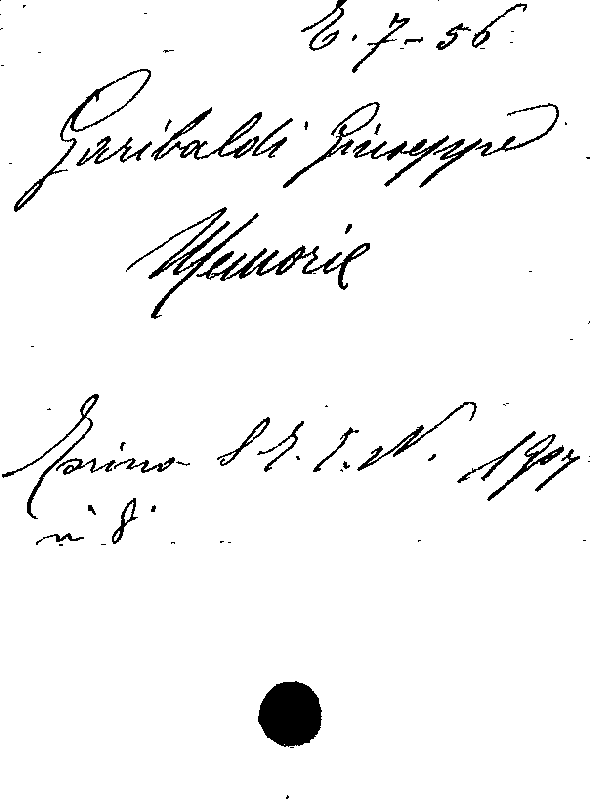 E. 7-56
Garibaldi Giuseppe
Memorie
Torino S. T. E. N. 1907
in 8°